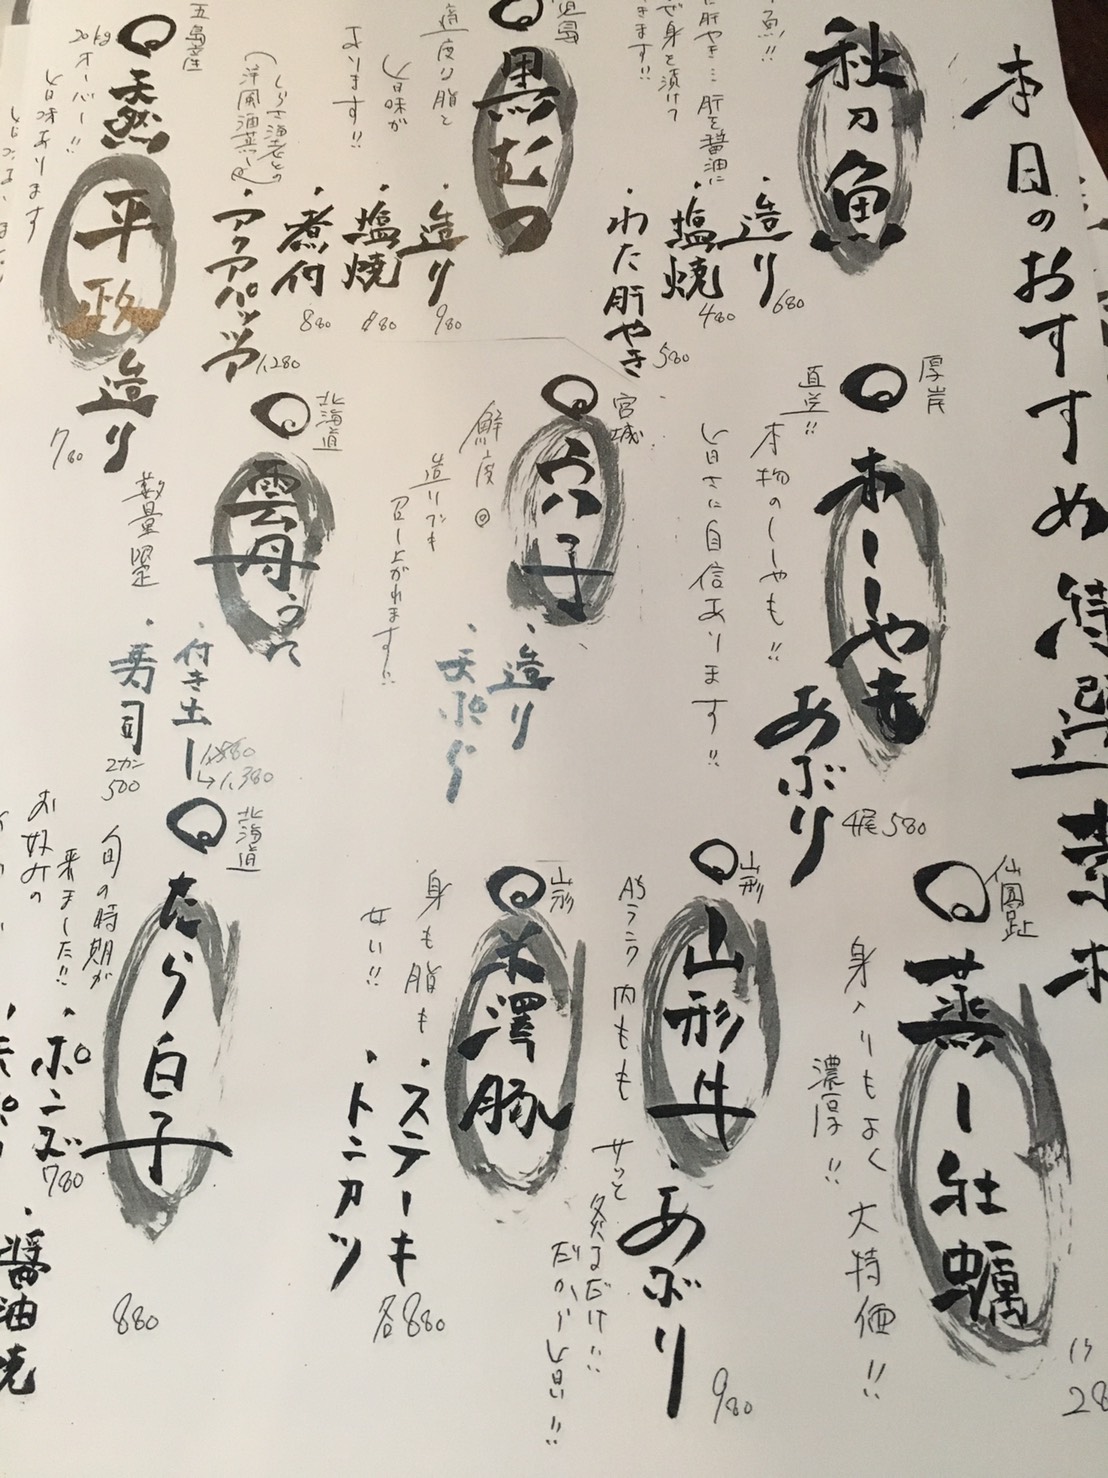 本日のおすすめ 特選素材
秋刀魚
魚!!
肝やき…肝を醤油に
ぜ身を漬け
きます!!
・造り 680
・塩焼 480
・わた肝やき 580
黒むつ
適度な脂と
旨味が
あります!!
・造り 980
・塩焼 880
・煮付 880
・アクアパッツァ 1,280
五島産
天然 平政
20kgオーバー!!
旨味あります
造り 780
厚岸
直送!!
本ししゃも
本物のししゃも!!
旨さに自信あります!!
あぶり
4尾 580
宮城
穴子
鮮度◎
造りでも
召し上がれます!!
・造り
・天ぷら
北海道
雲丹
数量限定
・付き出し
→1,380
・寿司
2カン
500
仙鳳趾
蒸し牡蠣
身入りもよく
濃厚!! 大特価!!
山形
山形牛
A5ランク 内もも
サッと
炙るだけ!!
だから旨い!!
・あぶり
980
山形
米澤豚
身も脂も
・ステーキ
・トンカツ
各880
北海道
たら白子
旬の時期が
来ました!!
お好みの
・ポン酢 780
880
醤油焼